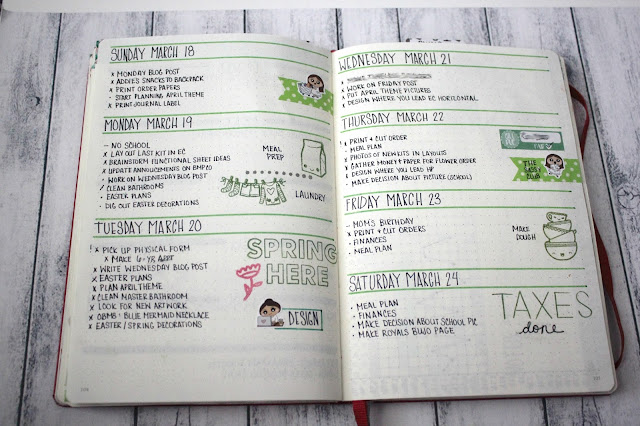 SUNDAY MARCH 18
x MONDAY BLOG POST
x ADDIE'S SNACKS TO BACKPACK
x PRINT ORDER PAPERS
- START PLANNING APRIL THEME
x PRINT JOURNAL LABEL
MONDAY MARCH 19
- NO SCHOOL
x LAY OUT LAST KIT IN EC
x BRAINSTORM FUNCTIONAL SHEET IDEAS
x UPDATE ANNOUCEMENTS ON
- WORK ON WEDNESDAY BLOG POST
/ CLEAN BATHROOMS
• EASTER PLANS
• DIG OUT EASTER DECORATIONS
MEAL
PREP
LAUNDRY
TUESDAY MARCH 20
! x PICK UP PHYSICAL FORM
x MAKE 6-YR APPT
x WRITE WEDNESDAY BLOG POST
x EASTER PLANS
x PLAN APRIL THEME
x CLEAN MASTER BATHROOM
x LOOK FOR NEW ARTWORK
x OBMB: BLUE MERMAID NECKLACE
x EASTER/SPRING DECORATIONS
SPRING
HERE
DESIGN
WEDNESDAY MARCH 21
x WORK ON FRIDAY POST
x PUT APRIL THEME PICTURES
x DESIGN WHERE YOU LEAD EC HORIZONTAL
THURSDAY MARCH 22
x PRINT + CUT ORDER
- MEAL PLAN
x PHOTOS OF NEW KITS IN LAYOUTS
x GATHER MONEY + PAPER FOR FLOWER ORDER
• DESIGN WHERE YOU LEAD HP
• MAKE DECISION ABOUT PICTURE (SCHOOL)
FRIDAY MARCH 23
- MOM'S BIRTHDAY
x PRINT + CUT ORDERS
• FINANCES
• MEAL PLAN
MAKE
DOUGH
SATURDAY MARCH 24
• MEAL PLAN
• FINANCES
• MAKE DECISION ABOUT SCHOOL PIC
• MAKE ROYALS BUJO PAGE
TAXES
done